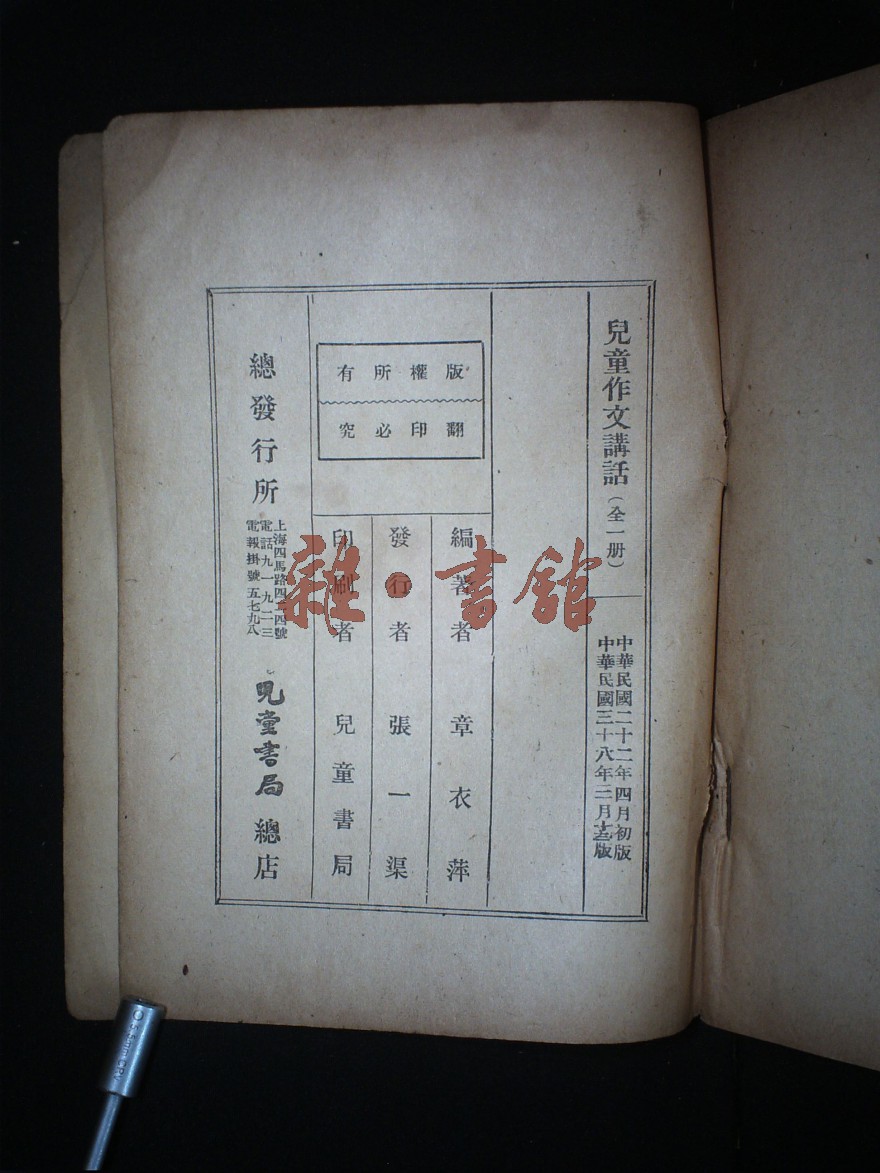 兒童作文講話(全一册)
中華民國二十二年四月初版
中華民國三十八年三月 版
版權所有
翻印必究
編著者 章衣萍
發行者 張一渠
印刷者 兒童書局
總發行所
上海四馬路四二四號
電話九一九一三
電報掛號五七九八
兒童書局總店
雜·書館